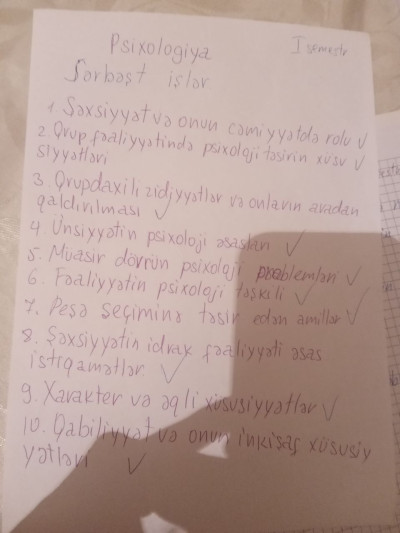 Psixologiya I semestr
Sərbəst işlər
1. Şəxsiyyət və onun cəmiyyətdə rolu ✓
2. Qrup fəaliyyətində psixoloji təsirin xüsu ✓
siyyətləri
3. Qrupdaxili ziddiyyətlər və onların aradan
qaldırılması ✓
4. Ünsiyyətin psixoloji əsasları ✓
5. Müasir dövrün psixoloji problemləri ✓
6. Fəaliyyətin psixoloji təşkili ✓
7. Peşə seçiminə təsir edən amillər ✓
8. Şəxsiyyətin idrak fəaliyyəti əsas
istiqamətlər ✓
9. Xarakter və əqli xüsusiyyətlər ✓
10. Qabiliyyət və onun inkişaf xüsusiy
yətləri ✓